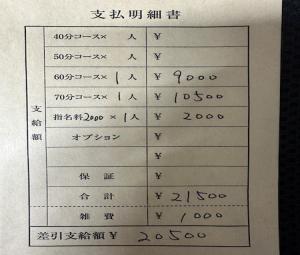 支払明細書
40分コース× 人 ¥
50分コース× 人 ¥
60分コース× 1人 ¥ 9000
70分コース× 1人 ¥ 10500
指名料2000 × 1人 ¥ 2000
オプション ¥
¥
支給額
保証 ¥
合計 ¥ 21500
雑費 ¥ 1000
差引支給額 ¥ 20500